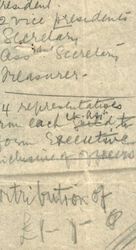 resident
2 vice presidents
Secretary
Ass. Secretary
Treasurer.
4 representatives
from each
form Executive
inclusive of
ntribution of
£1-1-0